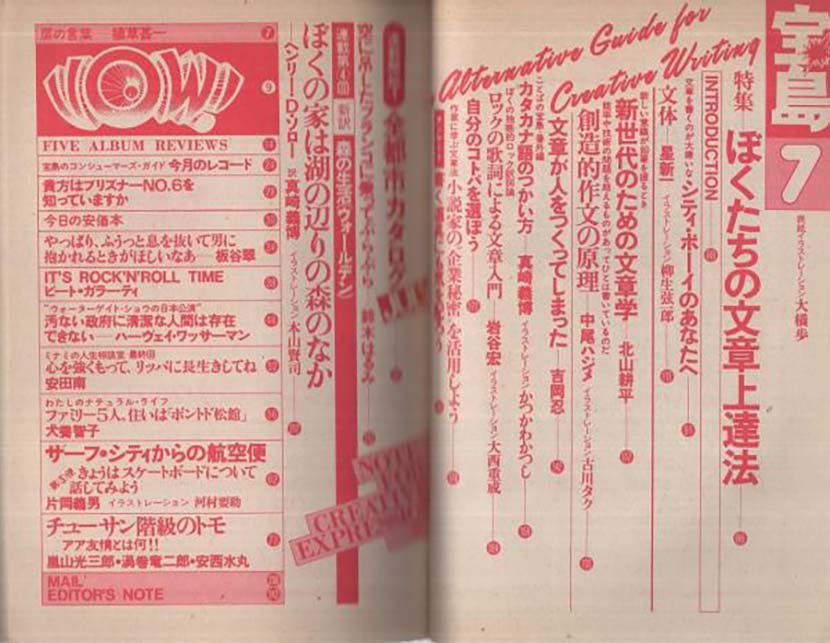 宝島
7
表紙イラストレーション 大橋歩
Alternative Guide for
Creative Writing
特集 ぼくたちの文章上達法
INTRODUCTION
文章を書くのが大嫌いなシティ・ボーイのあなたへ
文体 星新一 イラストレーション 柳生弦一郎
新世代のための文章学 北山耕平
創造的作文の原理 中尾ハジメ イラストレーション 古川タク
文章が人をつくってしまった 吉岡忍
ことばの宝島・番外編
カタカナ語のつかい方 真崎義博 イラストレーション かつかわかつし
ぼくの独断的ロック歌詞論
ロックの歌詞による文章入門 岩谷宏 イラストレーション 大西重成
自分のコトバを選ぼう
作家に学ぶ文章法 小説家の〝企業秘密〟を活用しよう
NOTE
FOR
CREATIVE
EXPRESSION
全都市カタログ
空に吊したブランコに乗ってぶらぶら 鈴木はるみ
連載第(4)回 新訳 森の生活(ウォールデン)
ぼくの家は湖の辺りの森のなか
ヘンリー・D・ソロー 訳 真崎義博 イラストレーション 本山賢司
扉の言葉 植草甚一 7
WOW! 9
FIVE ALBUM REVIEWS
宝島のコンシューマーズ・ガイド 今月のレコード
貴方はプリズナーNO.6を
知っていますか
今日の安価本
やっぱり、ふうっと息を抜いて男に
抱かれるときがほしいなあ 板谷翠
IT'S ROCK'N'ROLL TIME
ピート・ガラーティ
"ウォーターゲイト・ショウの日本公演"
汚ない政府に清潔な人間は存在
できない ハーヴェイ・ワッサーマン
ミナミの人生相談室 最終回
心を強くもって、リッパに長生きしてね
安田南
わたしのナチュラル・ライフ
ファミリー5人、住いは「ポントド松館」
犬養智子
サーフ・シティからの航空便
きょうはスケートボードについて
話してみよう
片岡義男 イラストレーション 河村要助
チューサン階級のトモ
アア友情とは何!!
嵐山光三郎・渦巻竜二郎・安西水丸
MAIL
EDITOR'S NOTE